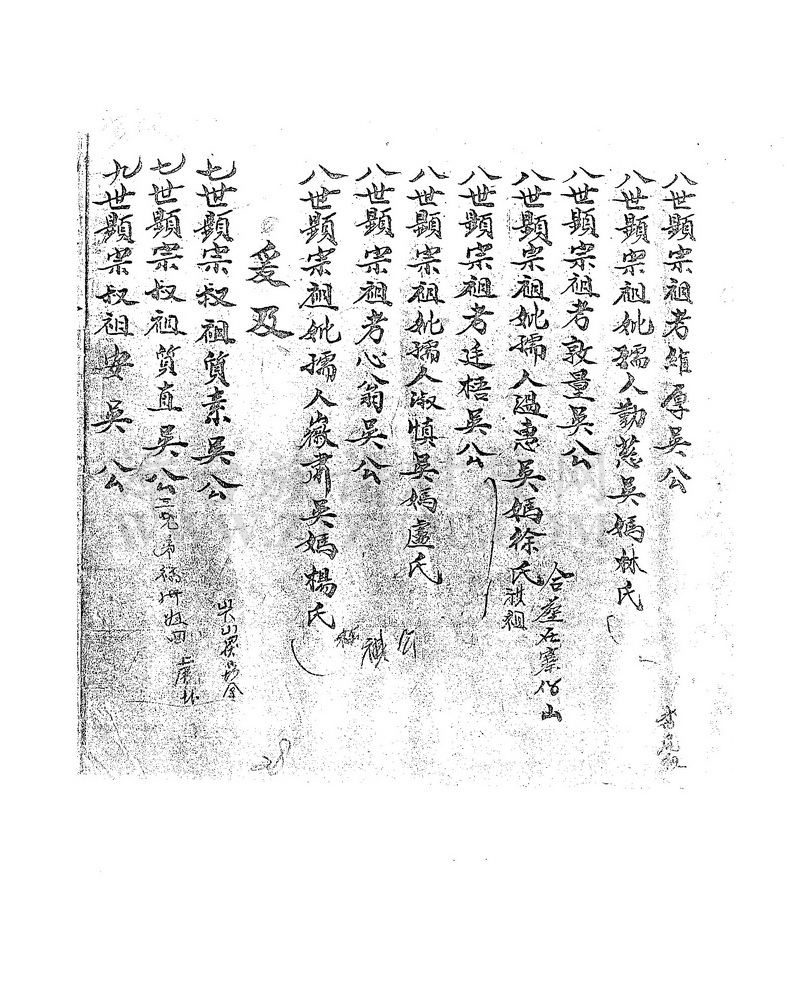 八世顯宗祖考維厚吳公
八世顯宗祖妣孺人勤慈吳媽林氏
八世顯宗祖考敦量吳公
八世顯宗祖妣孺人溫惠吳媽徐氏
汝祖
合葬在寨仔山
八世顯宗祖考廷梧吳公
八世顯宗祖妣孺人淑慎吳媽盧氏
八世顯宗祖考心翁吳公
八世顯宗祖妣孺人嶶肅吳媽楊氏
爰及
七世顯宗叔祖質素吳公
七世顯宗叔祖質直吳公
九世顯宗叔祖安吳公